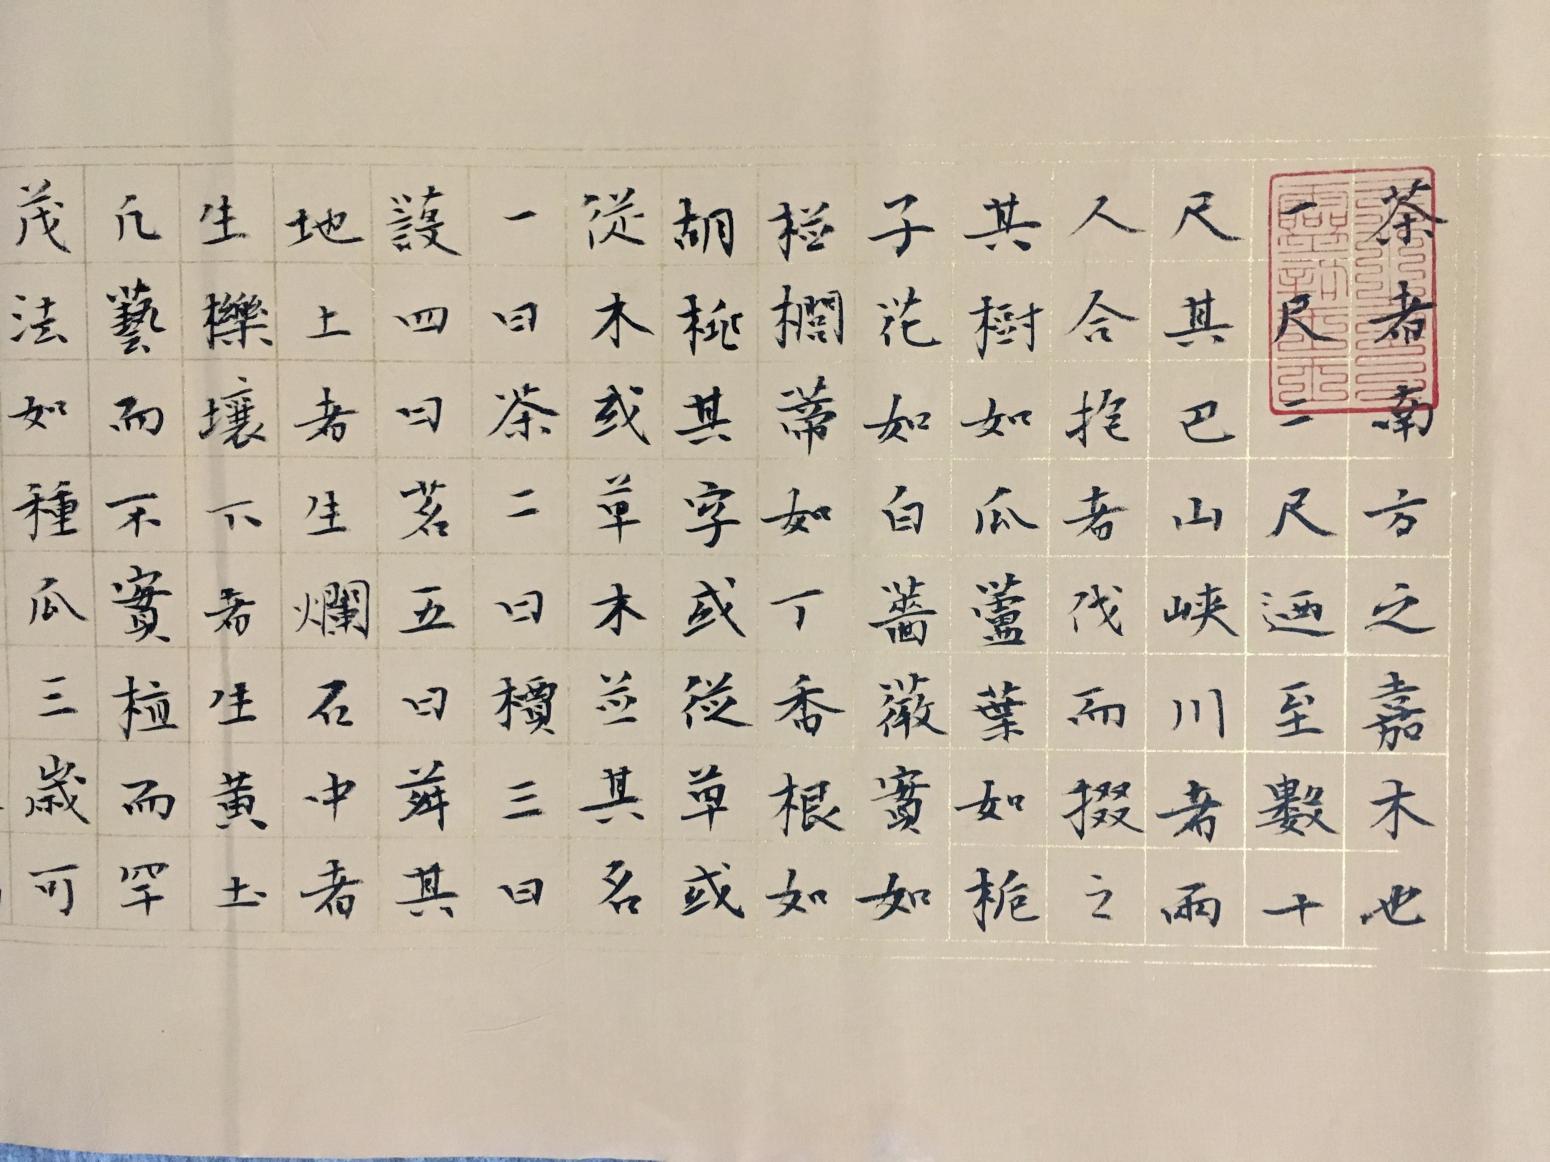 茶者南方之嘉木也
一尺二尺迺至數十
尺其巴山峽川者兩
人合抱者伐而掇之
其樹如瓜蘆葉如梔
子花如白薔薇實如
栟櫚蒂如丁香根如
胡桃其字或從草或
從木或草木並其名
一曰茶二曰檟三曰
蔎四曰茗五曰荈其
地上者生爛石中者
生櫟壤下者生黃土
凡藝而不實植而罕
茂法如種瓜三歲可